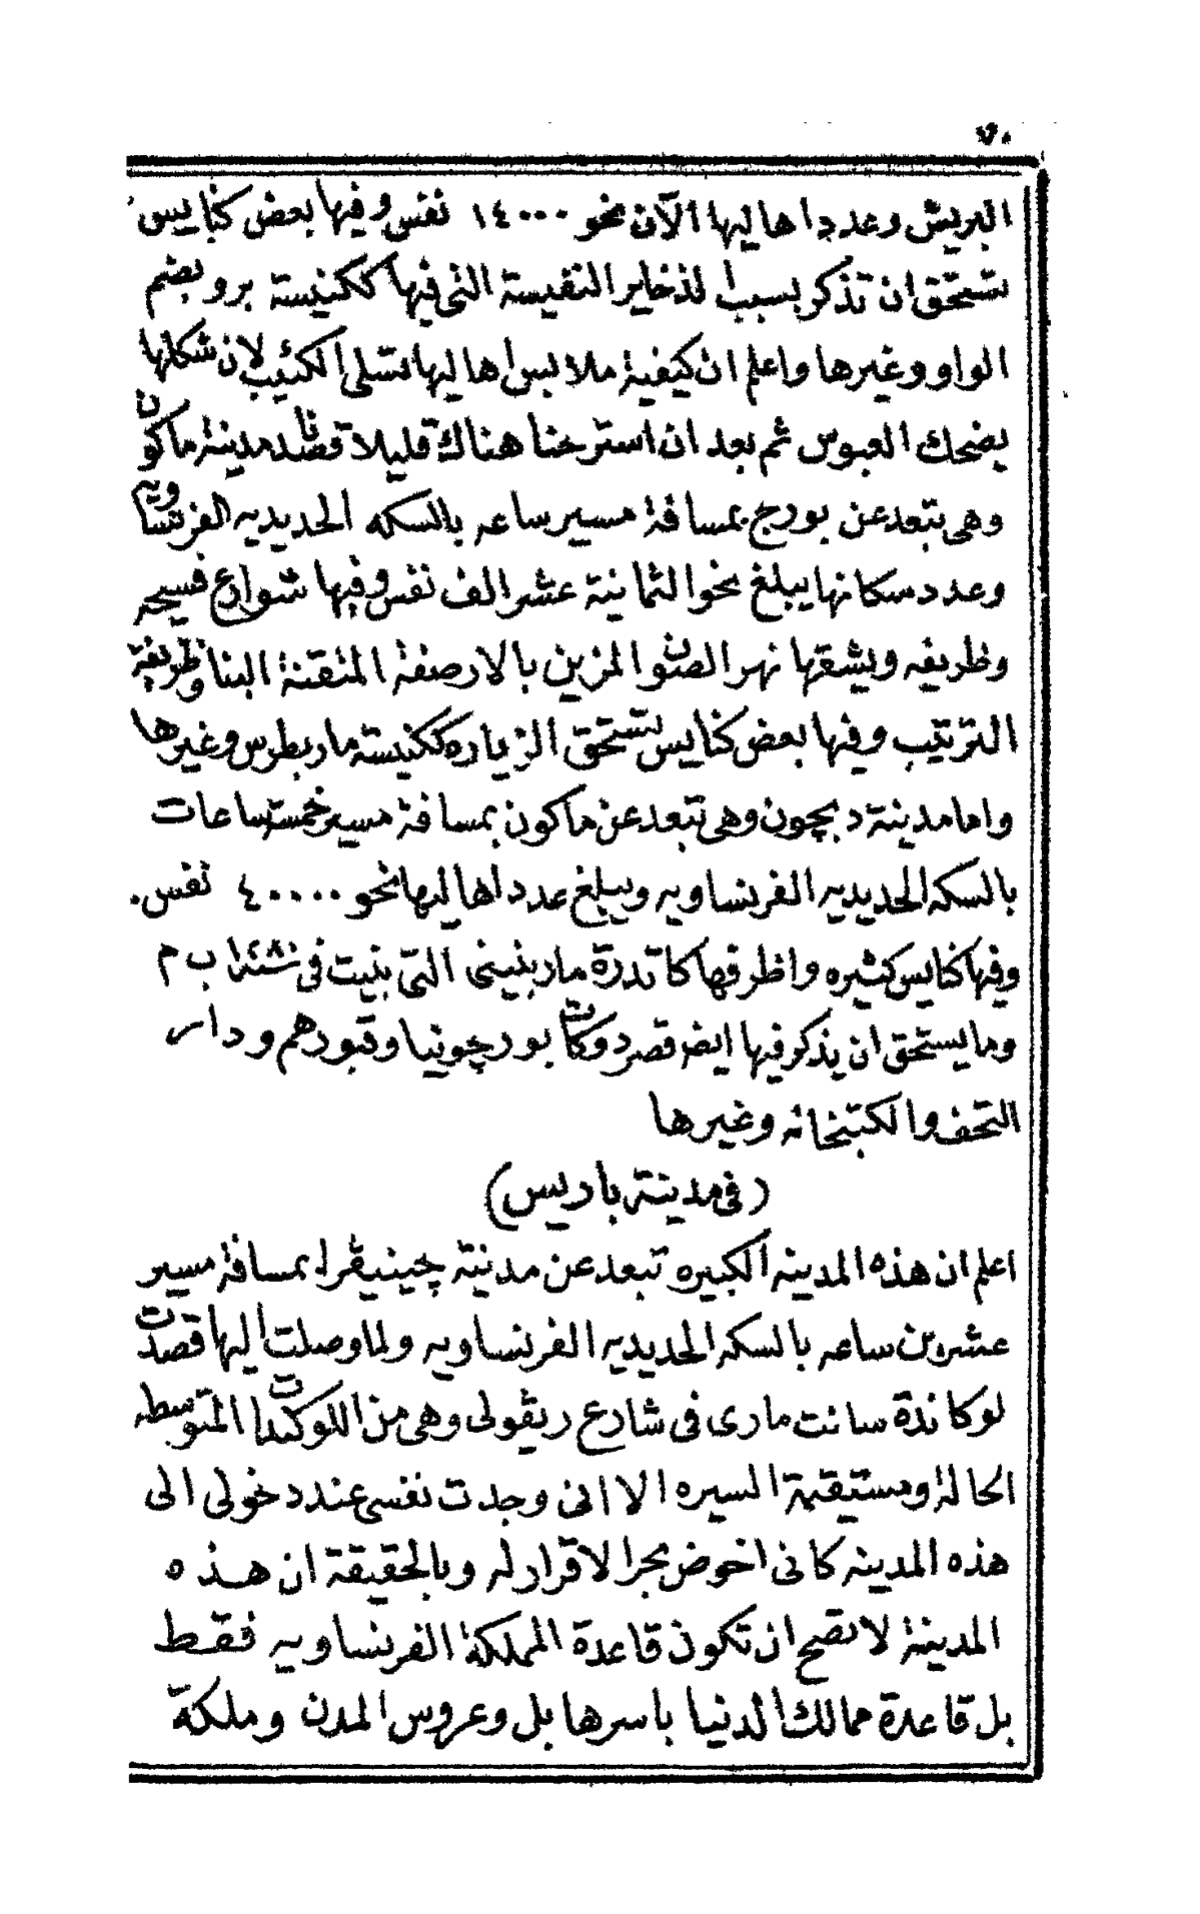 ٧٠
البريش وعدد اهاليها الآن نحو ١٤٠٠٠ نفس وفيها بعض كنايس
تستحق ان تذكر بسبب الذخاير النفيسة التى فيها ككنيسة برو بضم
الواو وغيرها واعلم ان كيفية ملابس اهاليها تسلى الكئيب لان شكلها
يضحك العبوس ثم بعد ان استرحنا هناك قليلا قصدنا مدينة ماكون
وهى تبعد عن بورج بمسافة مسير ساعه بالسكه الحديديه الفرنساويه
وعدد سكانها يبلغ نحو الثمانية عشر الف نفس وفيها شوارع فسيحه
وظريفه ويشقها نهر الصون المزين بالارصفة المتقنة البنا وظريفة
الترتيب وفيها بعض كنايس تستحق الزياره ككنيسة مار بطرس وغيرها
واما مدينة ديچون وهى تبعد عن ماكون بمسافة مسير خمسة ساعات
بالسكه الحديديه الفرنساويه ويبلغ عدد اهاليها نحو ٤٠٠٠٠ نفس.
وفيها كنايس كثيره واظرفها كاتدرة مار بنينى التى بنيت فى سنة ب م
ومايستحق ان يذكر فيها ايضا قصر دوكات بورچونيا وقبورهم ودار
التحف والكتبخانه وغيرها
(فى مدينة باريس)
اعلم ان هذه المدينه الكبيره تبعد عن مدينة چينيفرا بمسافة مسير
عشرين ساعه بالسكه الحديديه الفرنساويه ولما وصلت اليها قصدت
لوكاندة سانت مارى فى شارع ريڤولى وهى من اللوكندات المتوسطه
الحالة ومستقيمة السيره الا انى وجدت نفسى عند دخولى الى
هذه المدينه كانى اخوض بحرا لا قرار له وبالحقيقة ان هذه
المدينة لا تصح ان تكون قاعدة المملكة الفرنساويه فقط
بل قاعدة ممالك الدنيا باسرها بل وعروس المدن وملكة